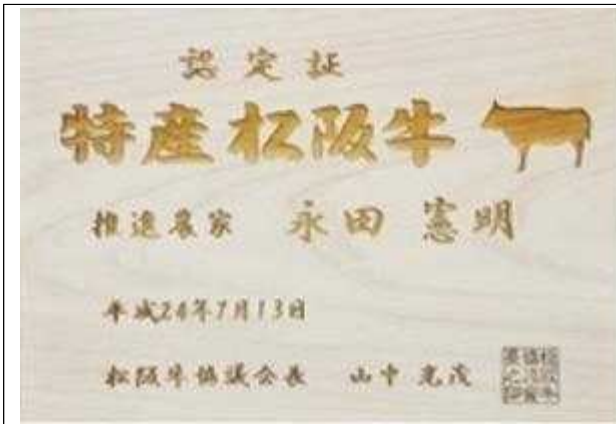 認定証
特産松阪牛
推進農家 永田 憲明
平成24年7月13日
松阪牛協議会長 山中 光茂